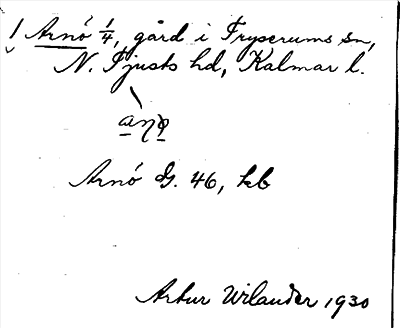 ! Arnö 1/4, gård i Tryserums sn,
N. Tjusts hd, Kalmar l.
Arnö G. 46, kb
Artur Wilander 1930